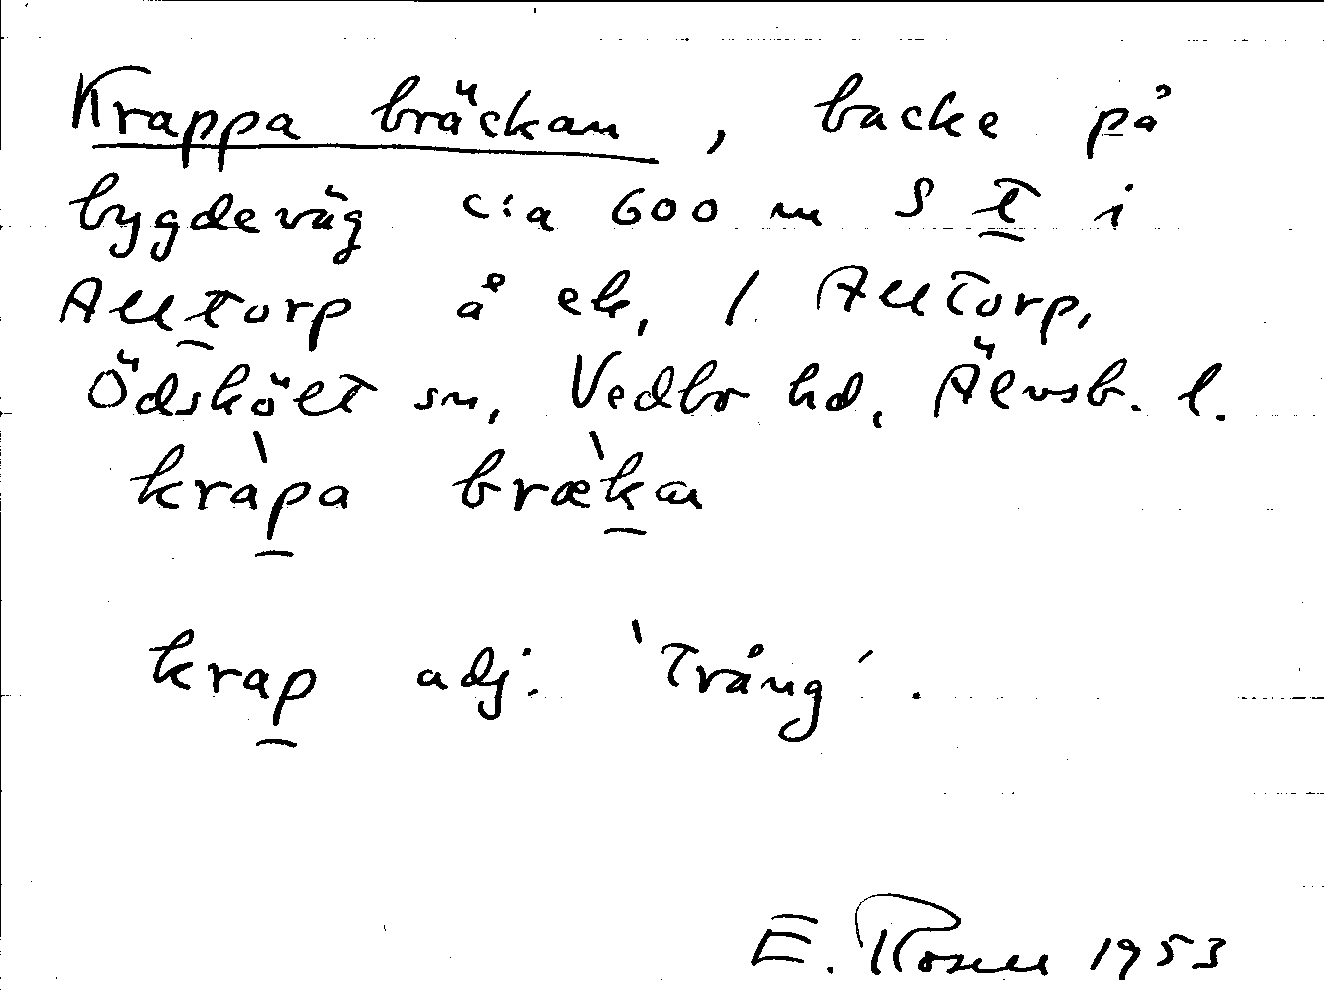 Krappa bräckan, backe på
bygdeväg c:a 600 m S t i
Alltorp å ek, / Alltorp,
Ödskölt sn, Vedbo hd, Älvsb. l.
kràpa bræ̀kan
krap adj. 'trång'.
E. Rosell 1953